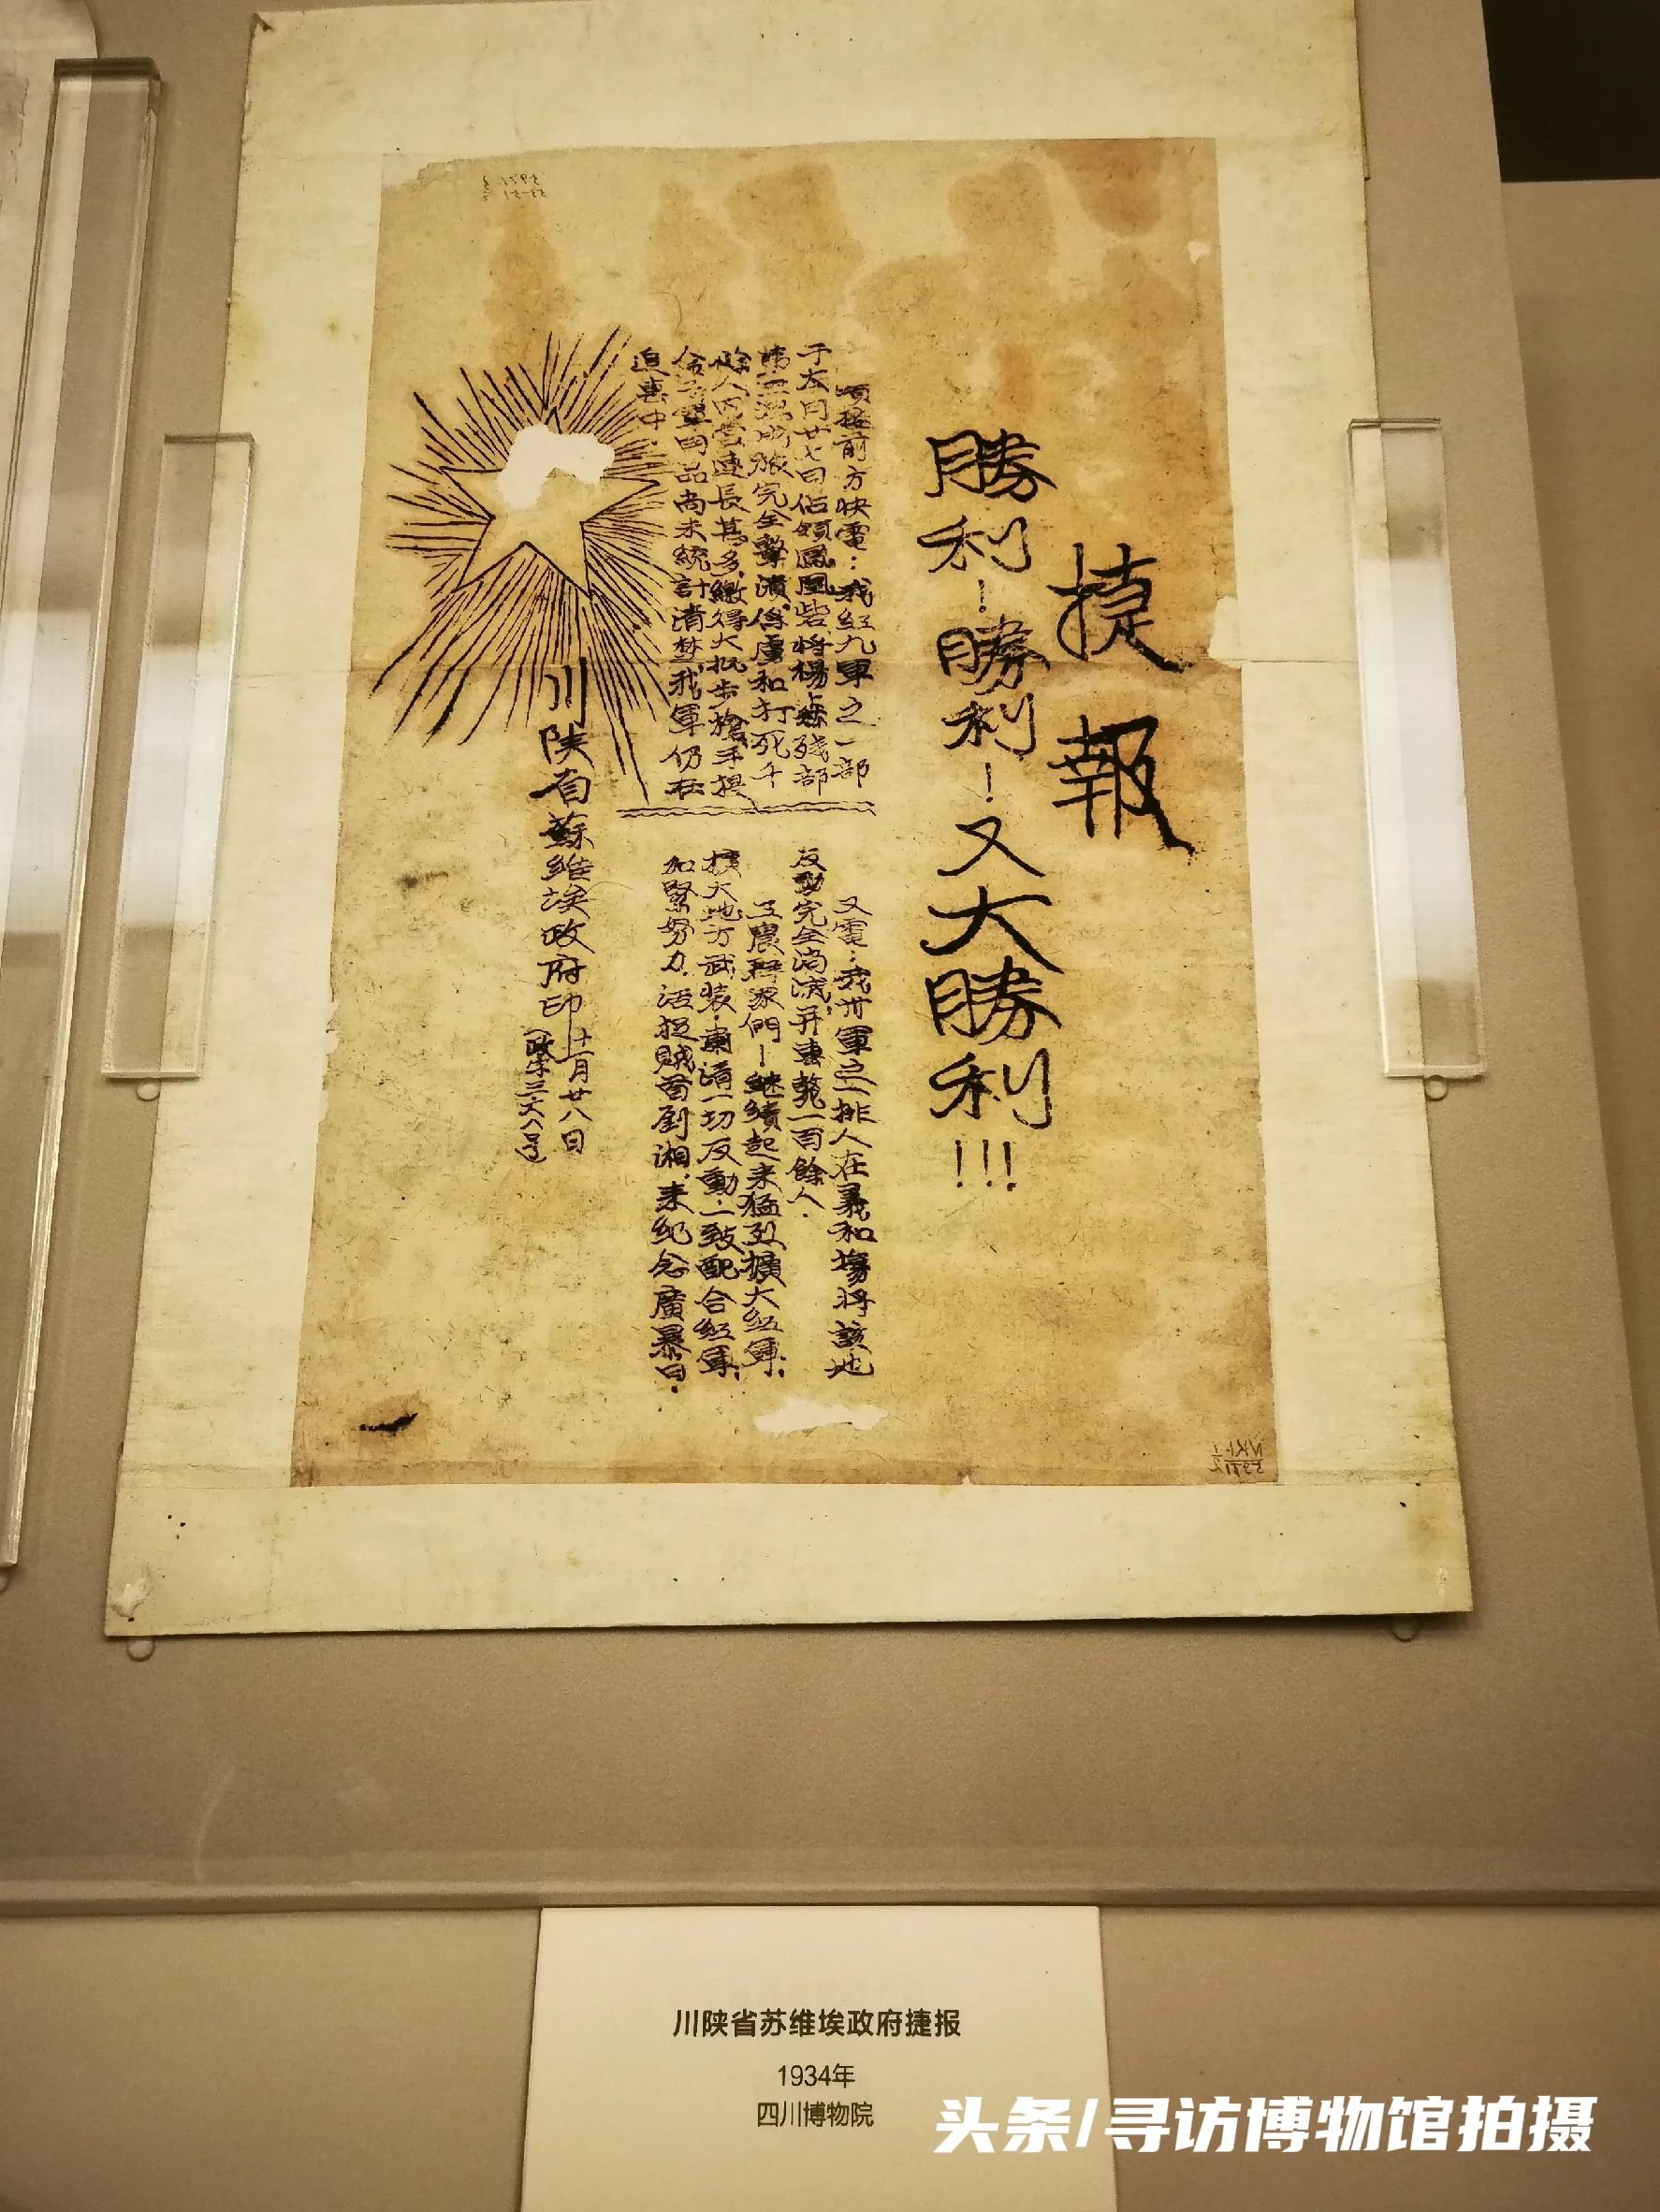 捷報
勝利！勝利！又大勝利！！！
頃接前方快電：我紅九軍之一部
于本月廿七日佔領鳳凰砦，將楊森殘部
第二混成旅完全擊潰，俘虜和打死千
餘人，內營連長甚多，繳得大批步槍手提
軍用品尚未統計清楚，我軍仍在
追擊中。
又電：我卅軍之一排人在義和場將該地
反動完全消滅，并斃一百餘人．
工農群眾們！繼續起來猛烈擴大紅軍．
擴大地方武裝．肅清一切反動．一致配合紅軍．
加緊努力．活捉賊首劉湘．來紀念廣暴日．
川陝省蘇維埃政府印
十一月廿八日
川陕省苏维埃政府捷报
1934年
四川博物院
头条/寻访博物馆拍摄